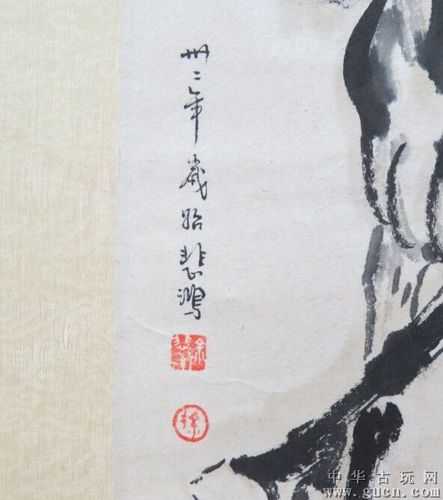 卅二年歲始悲鴻
中华古玩网
www.gucn.com